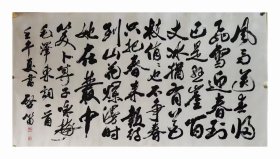 風雨送春歸
飛雪迎春到
已是懸崖百
丈冰猶有花
枝俏俏也不爭春
只把春來報待
到山花爛漫時
她在叢中
笑卜算子詠梅
毛澤東詞一首